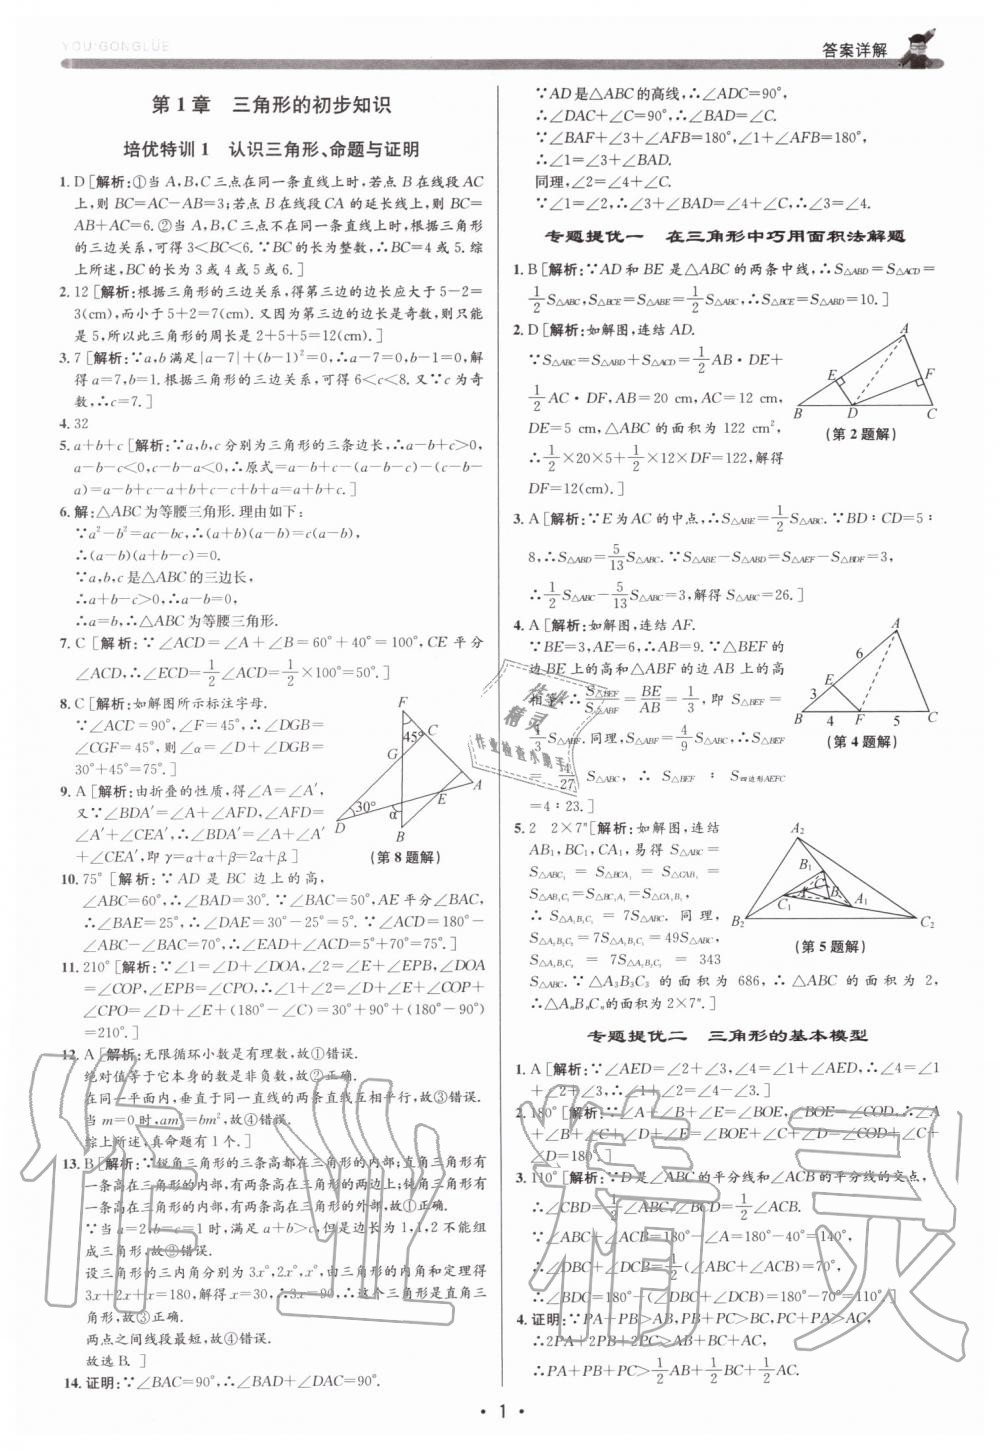 YOU·GONGLÜE
答案详解
第1章 三角形的初步知识
培优特训1 认识三角形、命题与证明
1. D [解析:①当A,B,C三点在同一条直线上时,若点B在线段AC
上,则BC=AC-AB=3;若点B在线段CA的延长线上,则BC=
AB+AC=6.②当A,B,C三点不在同一条直线上时,根据三角形
的三边关系,可得3<BC<6.∵BC的长为整数,∴BC=4或5.综
上所述,BC的长为3或4或5或6.]
2. 12 [解析:根据三角形的三边关系,得第三边的边长应大于5-2=
3(cm),而小于5+2=7(cm).又因为第三边的边长是奇数,则只能
是5,所以此三角形的周长是2+5+5=12(cm).]
3. 7 [解析:∵a,b满足|a-7|+(b-1)²=0,∴a-7=0,b-1=0,解
得a=7,b=1.根据三角形的三边关系,可得6<c<8.又∵c为奇
数,∴c=7.]
4. 32
5. a+b+c [解析:∵a,b,c分别为三角形的三条边长,∴a-b+c>0,
a-b-c<0,c-b-a<0,∴原式=a-b+c-(a-b-c)-(c-b-
a)=a-b+c-a+b+c-c+b+a=a+b+c.]
6. 解:△ABC为等腰三角形.理由如下:
∵a²-b²=ac-bc,∴(a+b)(a-b)=c(a-b),
∴(a-b)(a+b-c)=0.
∵a,b,c是△ABC的三边长,
∴a+b-c>0,∴a-b=0,
∴a=b,∴△ABC为等腰三角形.
7. C [解析:∵∠ACD=∠A+∠B=60°+40°=100°,CE平分
∠ACD,∴∠ECD=1/2∠ACD=1/2×100°=50°.]
8. C [解析:如解图所示标注字母.
∵∠ACD=90°,∠F=45°,∴∠DGB=
∠CGF=45°,则∠α=∠D+∠DGB=
30°+45°=75°.]
F
45°
C
G
A
E
30°
α
D
B
(第8题解)
9. A [解析:由折叠的性质,得∠A=∠A′,
又∵∠BDA′=∠A+∠AFD,∠AFD=
∠A′+∠CEA′,∴∠BDA′=∠A+∠A′
+∠CEA′,即γ=α+α+β=2α+β.]
10. 75° [解析:∵AD是BC边上的高,
∠ABC=60°,∴∠BAD=30°.∵∠BAC=50°,AE平分∠BAC,
∴∠BAE=25°,∴∠DAE=30°-25°=5°.∵∠ACD=180°-
∠ABC-∠BAC=70°,∴∠EAD+∠ACD=5°+70°=75°.]
11. 210° [解析:∵∠1=∠D+∠DOA,∠2=∠E+∠EPB,∠DOA
=∠COP,∠EPB=∠CPO,∴∠1+∠2=∠D+∠E+∠COP+
∠CPO=∠D+∠E+(180°-∠C)=30°+90°+(180°-90°)
=210°.]
12. A [解析:无限循环小数是有理数,故①错误.
绝对值等于它本身的数是非负数,故②正确.
在同一平面内,垂直于同一直线的两条直线互相平行,故③错误.
当m=0时,am²=bm²,故④错误.
综上所述,真命题有1个.]
13. B [解析:∵锐角三角形的三条高都在三角形的内部;直角三角形有
一条高在三角形的内部,有两条高在三角形的两边上;钝角三角形有
一条高在三角形的内部,有两条高在三角形的外部,故①正确.
∵当a=2,b=c=1时,满足a+b>c,但是边长为1,1,2不能组
成三角形,故②错误.
设三角形的三内角分别为3x°,2x°,x°,由三角形的内角和定理得
3x+2x+x=180,解得x=30,∴3x=90,∴这个三角形是直角三
角形,故③正确.
两点之间线段最短,故④错误.
故选B.]
14. 证明:∵∠BAC=90°,∴∠BAD+∠DAC=90°.
∵AD是△ABC的高线,∴∠ADC=90°,
∴∠DAC+∠C=90°,∴∠BAD=∠C.
∵∠BAF+∠3+∠AFB=180°,∠1+∠AFB=180°,
∴∠1=∠3+∠BAD.
同理,∠2=∠4+∠C.
∵∠1=∠2,∴∠3+∠BAD=∠4+∠C,∴∠3=∠4.
专题提优一 在三角形中巧用面积法解题
1. B [解析:∵AD和BE是△ABC的两条中线,∴S△ABD=S△ACD=
1/2 S△ABC,S△BCE=S△ABE=1/2 S△ABC,∴S△BCE=S△ABD=10.]
2. D [解析:如解图,连结AD.
∵S△ABC=S△ABD+S△ACD=1/2 AB·DE+
1/2 AC·DF,AB=20 cm,AC=12 cm,
DE=5 cm,△ABC的面积为122 cm²,
∴1/2×20×5+1/2×12×DF=122,解得
DF=12(cm).]
A
E
F
B
D
C
(第2题解)
3. A [解析:∵E为AC的中点,∴S△ABE=1/2 S△ABC.∵BD∶CD=5∶
8,∴S△ABD=5/13 S△ABC.∵S△ABE-S△ABD=S△AEF-S△BDF=3,
∴1/2 S△ABC-5/13 S△ABC=3,解得S△ABC=26.]
4. A [解析:如解图,连结AF.
∵BE=3,AE=6,∴AB=9.∵△BEF的
边BE上的高和△ABF的边AB上的高
相等,∴S△BEF/S△ABF=BE/AB=1/3,即S△BEF=
1/3 S△ABF.同理,S△ABF=4/9 S△ABC,∴S△BEF
=4/27 S△ABC,∴S△BEF∶S四边形AEFC
=4∶23.]
A
6
E
3
B
4
F
5
C
(第4题解)
5. 2 2×7ⁿ [解析:如解图,连结
AB₁,BC₁,CA₁,易得S△ABC=
S△ABC₁=S△BCA₁=S△CAB₁=
S△AB₁C₁=S△BC₁A₁=S△CA₁B₁,
∴S△A₁B₁C₁=7S△ABC.同理,
S△A₂B₂C₂=7S△A₁B₁C₁=49S△ABC,
S△A₃B₃C₃=7S△A₂B₂C₂=343
S△ABC.∵△A₃B₃C₃的面积为686,∴△ABC的面积为2,
∴△AₙBₙCₙ的面积为2×7ⁿ.]
A₂
B₁
A
C
B
C₁
A₁
B₂
C₂
(第5题解)
专题提优二 三角形的基本模型
1. A [解析:∵∠AED=∠2+∠3,∠4=∠1+∠AED,∴∠4=∠1
+∠2+∠3,∴∠1+∠2=∠4-∠3.]
2. 180° [解析:∵∠A+∠B+∠E=∠BOE,∠BOE=∠COD,∴∠A
+∠B+∠C+∠D+∠E=∠BOE+∠C+∠D=∠COD+∠C+
∠D=180°.]
3. 110° [解析:∵D是∠ABC的平分线和∠ACB的平分线的交点,
∴∠CBD=1/2∠ABC,∠BCD=1/2∠ACB.
∵∠ABC+∠ACB=180°-∠A=180°-40°=140°,
∴∠DBC+∠DCB=1/2(∠ABC+∠ACB)=70°,
∴∠BDC=180°-(∠DBC+∠DCB)=180°-70°=110°.]
4. 证明:∵PA+PB>AB,PB+PC>BC,PC+PA>AC,
∴2PA+2PB+2PC>AB+BC+AC,
∴PA+PB+PC>1/2 AB+1/2 BC+1/2 AC.
作业精灵
作业检查小助手
作业精灵
· 1 ·